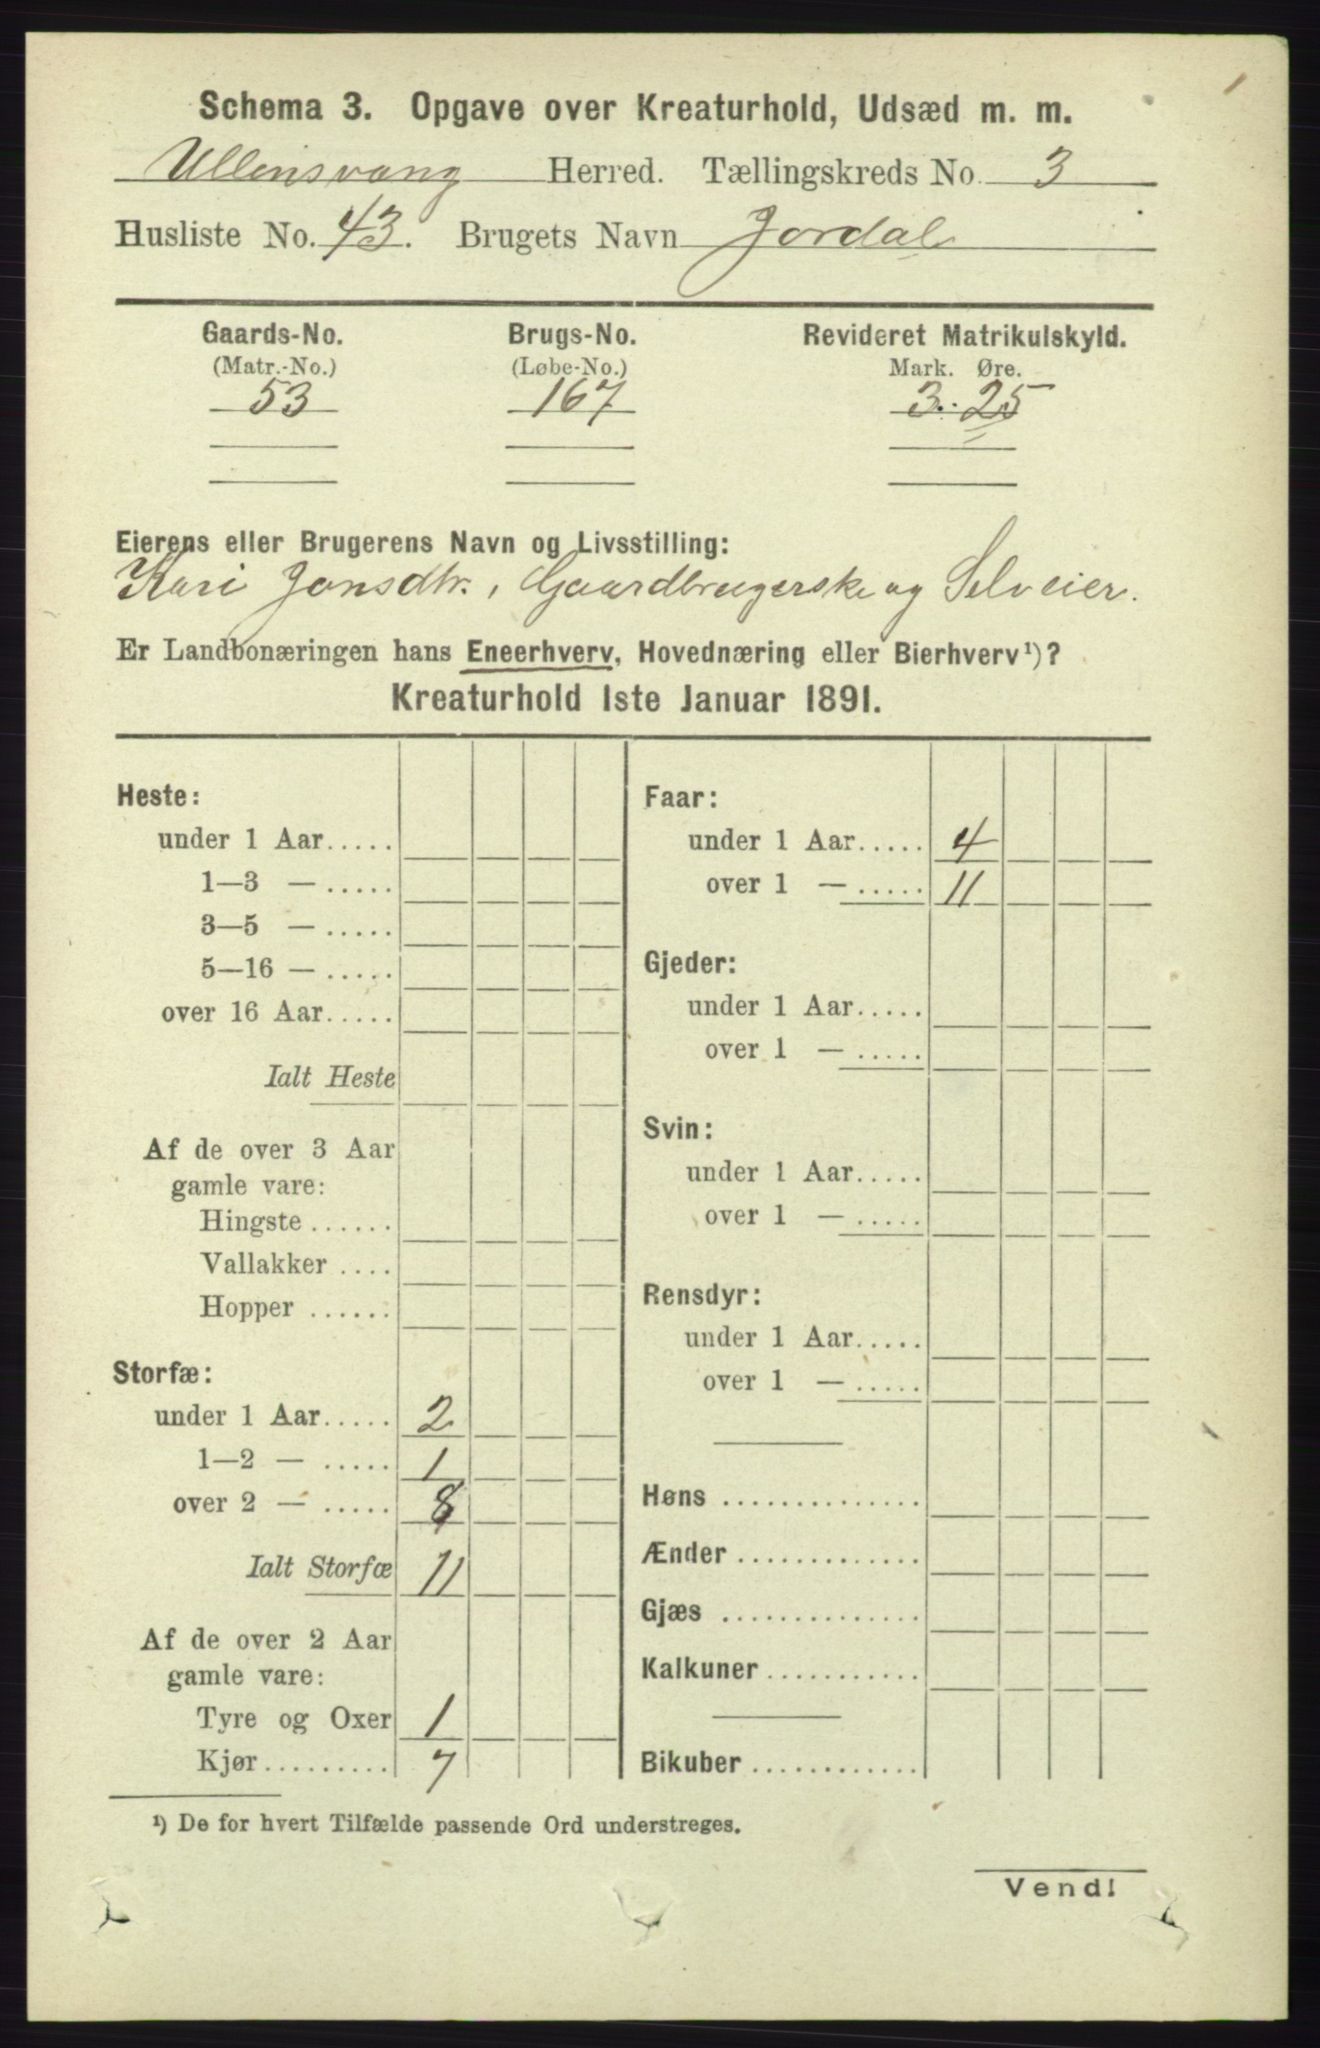 Schema 3. Opgave over Kreaturhold, Udsæd m. m.
Ullensvang Herred. Tællingskreds No. 3
Husliste No. 43. Brugets Navn Jordal
Gaards-No. Brugs-No. Revideret Matrikulskyld.
(Matr.-No.) (Løbe-No.) Mark. Øre.
53 167 3. 25
Eierens eller Brugerens Navn og Livsstilling:
Kari Jonsdtr., Gaardbrugerske og Selveier.
Er Landbonæringen hans Eneerhverv, Hovednæring eller Bierhverv¹)?
Kreaturhold 1ste Januar 1891.
Heste:
under 1 Aar.....
1—3 — .....
3—5 — .....
5—16 — .....
over 16 Aar.....
Ialt Heste
Af de over 3 Aar
gamle vare:
Hingste ......
Vallakker ....
Hopper ......
Storfæ:
under 1 Aar..... 2
1—2 — ..... 1
over 2 — ..... 8
Ialt Storfæ 11
Af de over 2 Aar
gamle vare:
Tyre og Oxer 1
Kjør......... 7
Faar:
under 1 Aar..... 4
over 1 — ..... 11
Gjeder:
under 1 Aar.....
over 1 — .....
Svin:
under 1 Aar.....
over 1 — .....
Rensdyr:
under 1 Aar.....
over 1 — .....
Høns ..............
Ænder .............
Gjæs ..............
Kalkuner ...........
Bikuber ............
¹) De for hvert Tilfælde passende Ord understreges.
Vend!